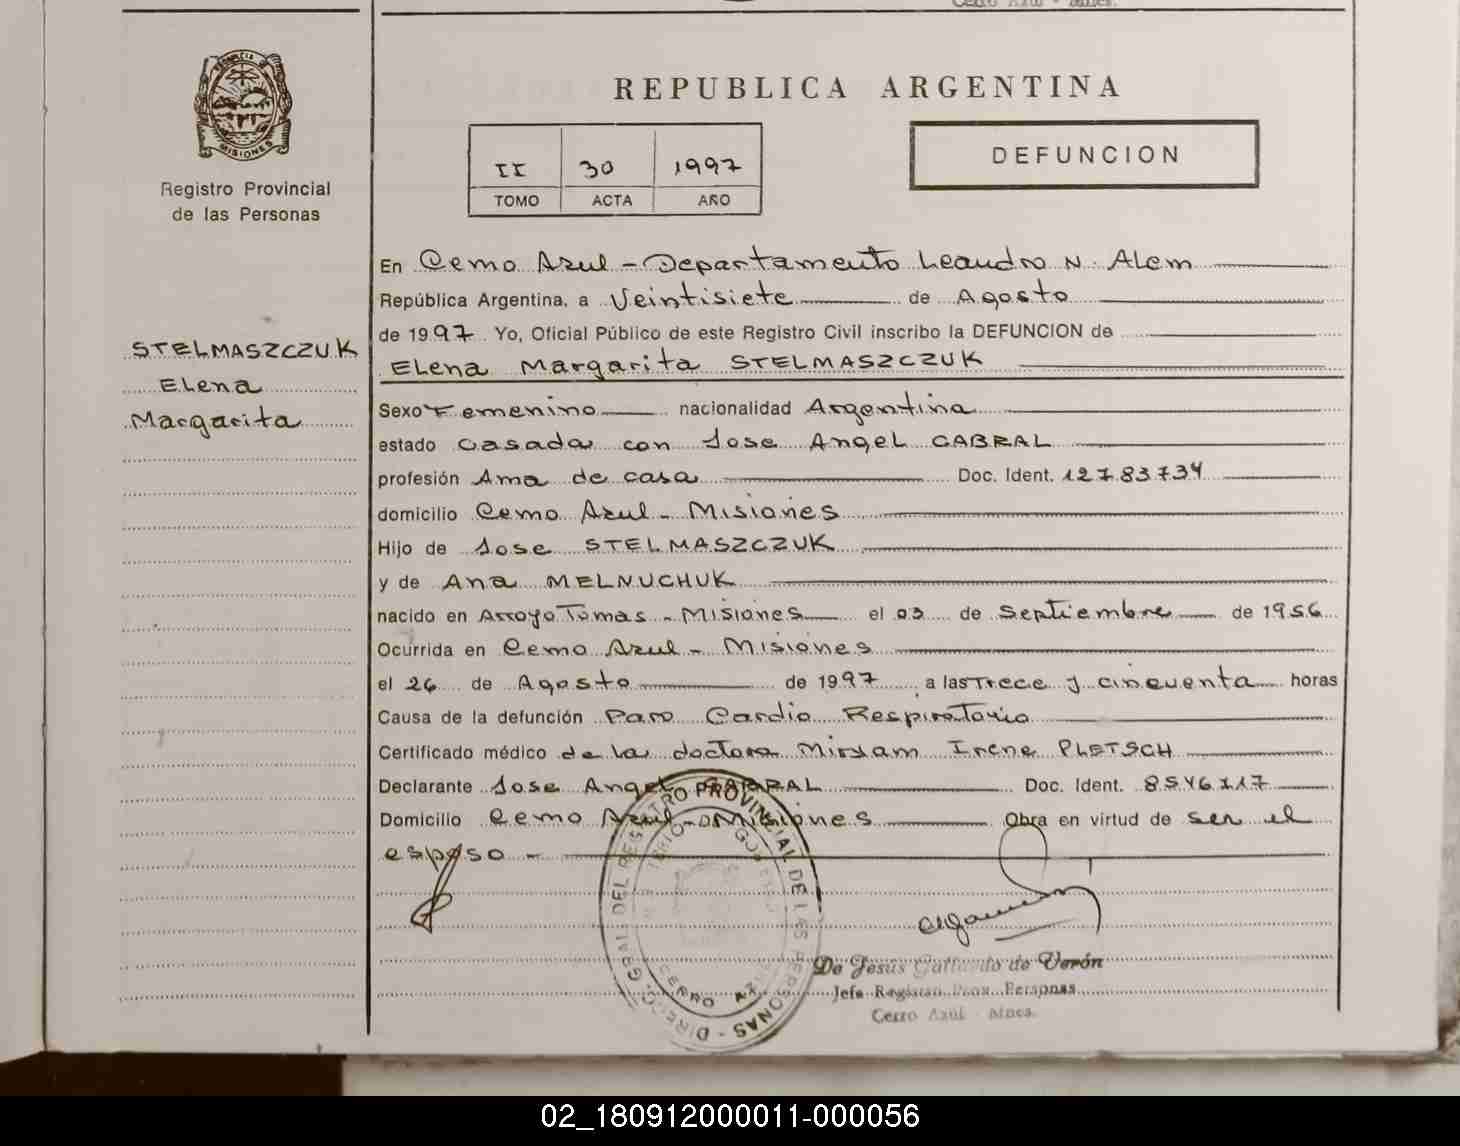 REPUBLICA ARGENTINA
MISIONES
Registro Provincial
de las Personas
II 30 1997
TOMO ACTA AÑO
DEFUNCION
STELMASZCZUK
Elena
Margarita
En Cerro Azul - Departamento Leandro N. Alem
República Argentina, a Veintisiete de Agosto
de 1997. Yo, Oficial Público de este Registro Civil inscribo la DEFUNCION de
Elena Margarita STELMASZCZUK
Sexo Femenino nacionalidad Argentina
estado casada con Jose Angel CABRAL
profesión Ama de casa Doc. Ident. 12783734
domicilio Cerro Azul - Misiones
Hijo de Jose STELMASZCZUK
y de Ana MELNUCHUK
nacido en Arroyo Tomas - Misiones el 03 de Septiembre de 1956
Ocurrida en Cerro Azul - Misiones
el 26 de Agosto de 1997 a las Trece y cincuenta horas
Causa de la defunción Paro Cardio Respiratorio
Certificado médico de la doctora Miryam Irene PLETSCH
Declarante Jose Angel CABRAL Doc. Ident. 8546117
Domicilio Cerro Azul - Misiones Obra en virtud de ser el
esposo -
DIREC. GRAL. DEL REGISTRO PROVINCIAL DE LAS PERSONAS -
CERRO AZUL
De Jesús Gallardo de Verón
Jefa Registro Prov. Personas
Cerro Azul - Mnes.
02_180912000011-000056